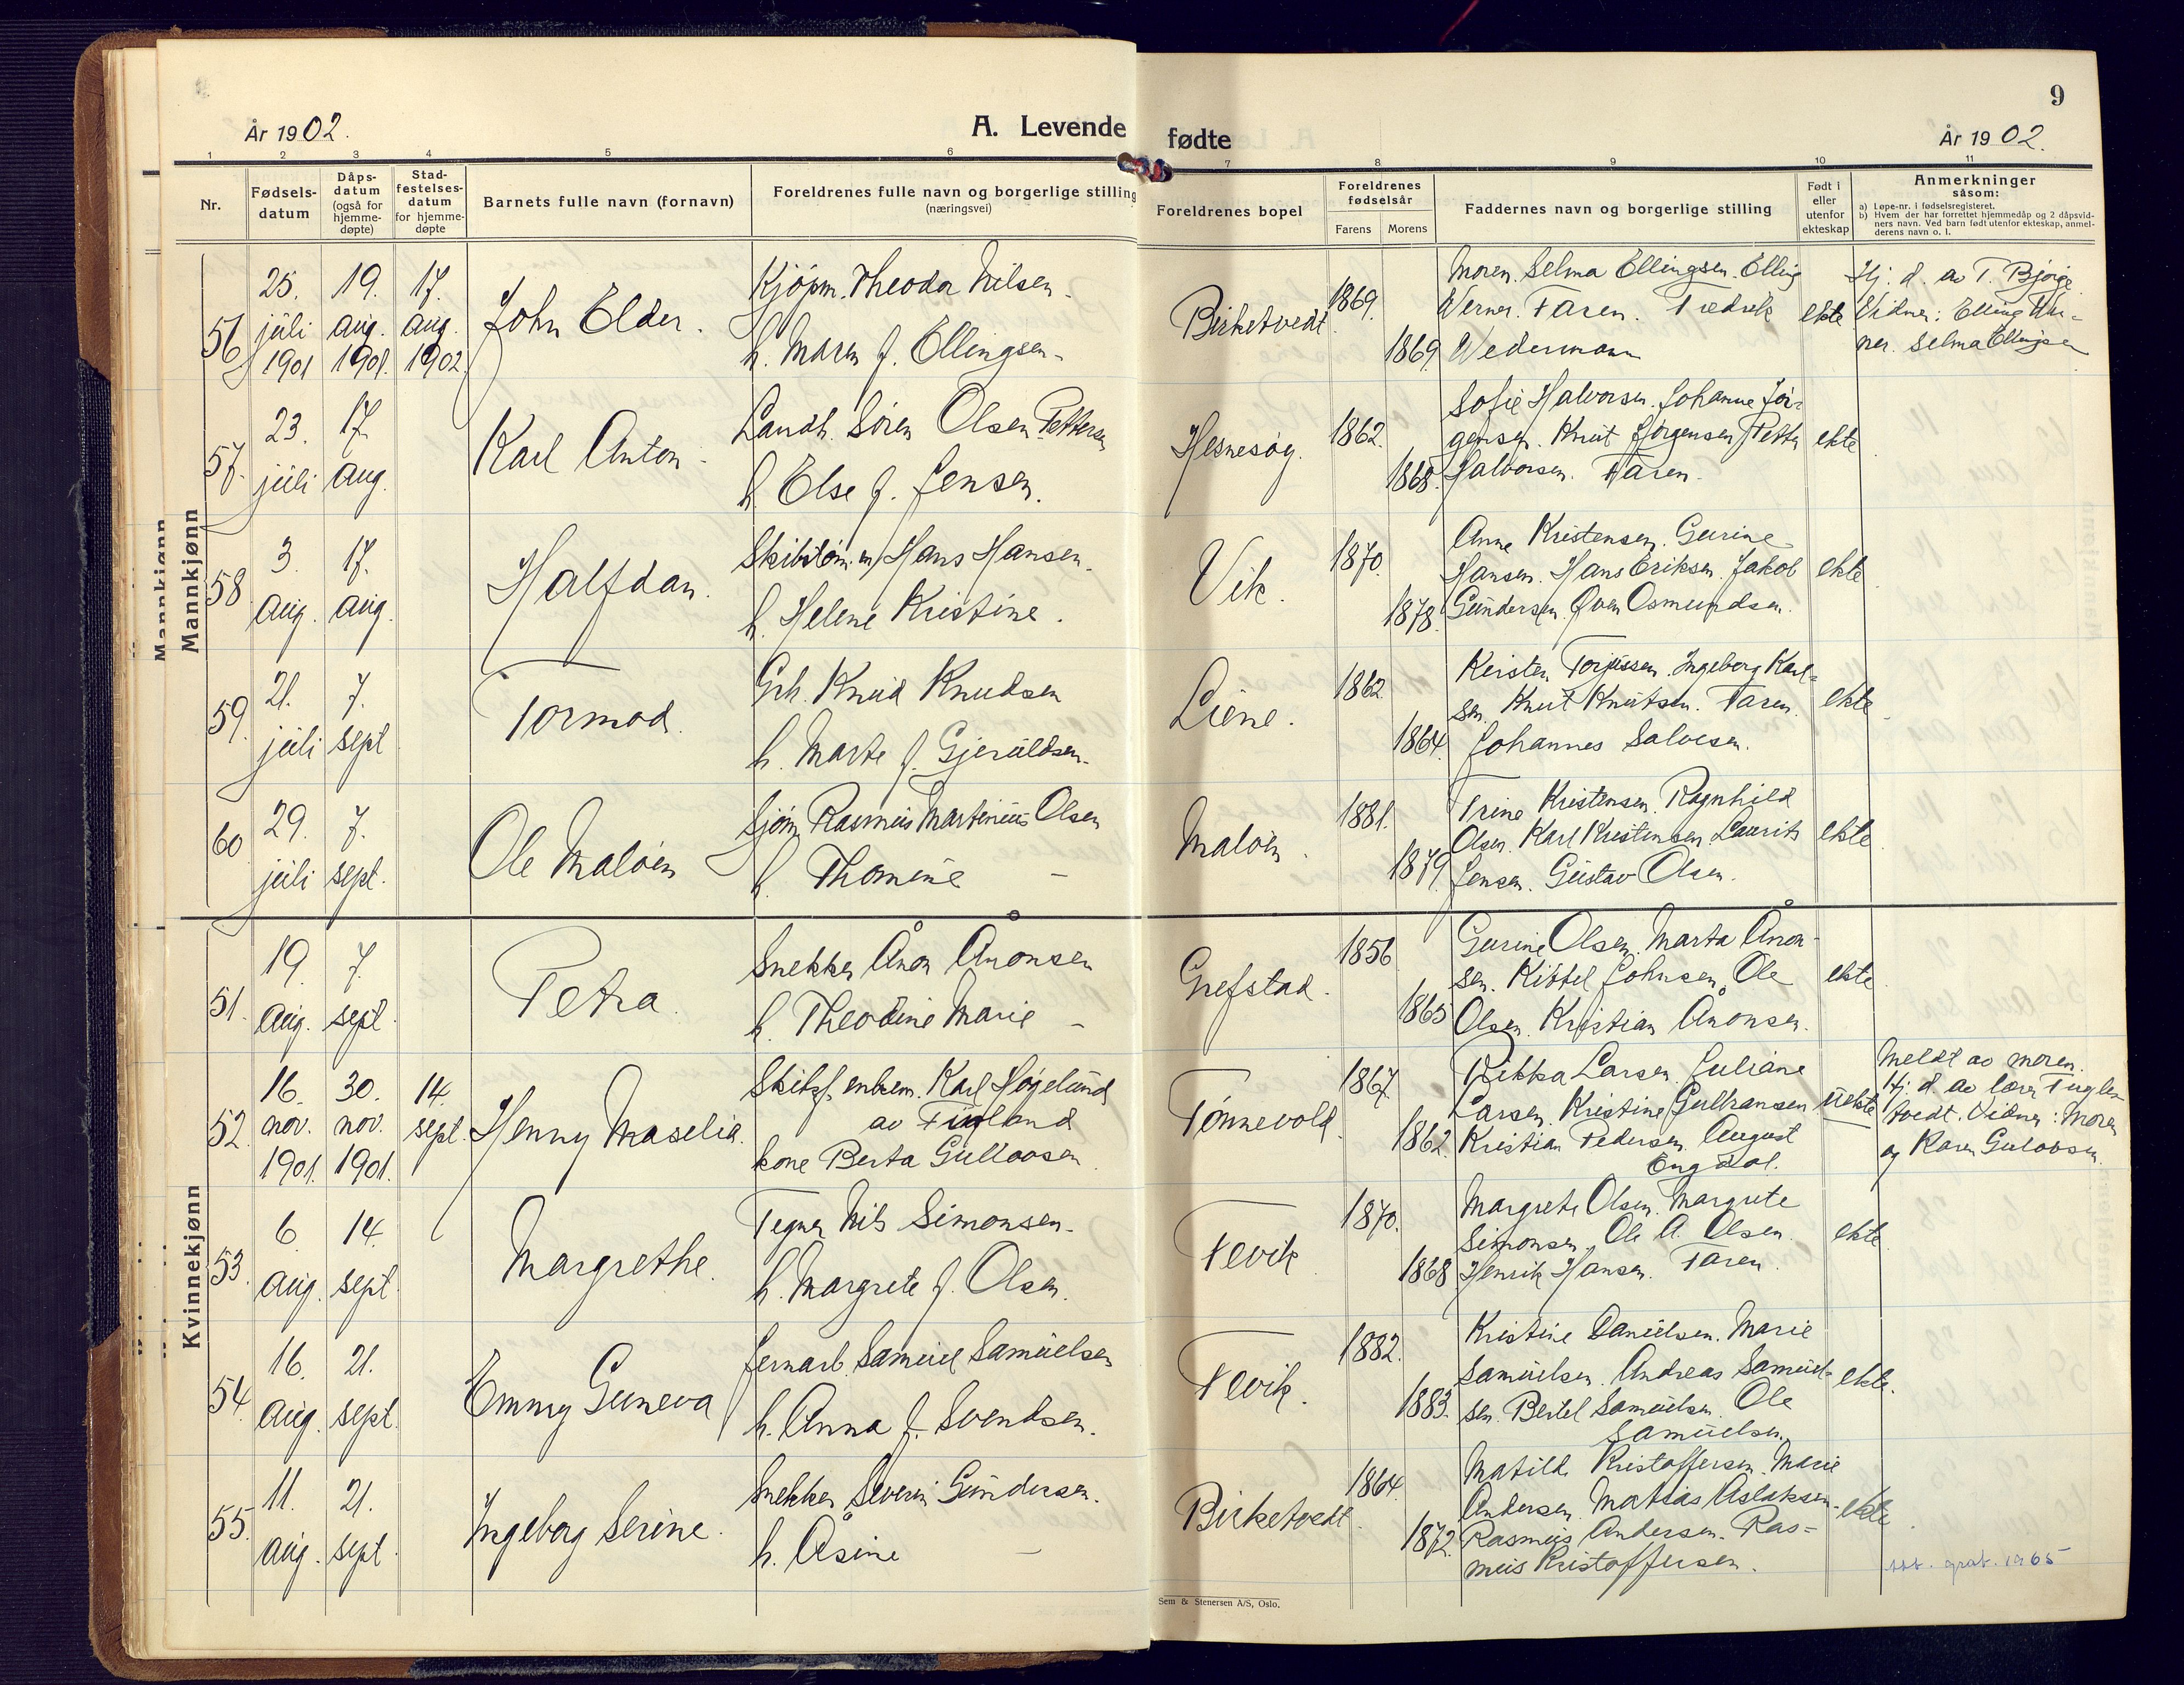 År 1902.
A. Levende fødte
År 1902.
9
1 2 3 4 5 6 7 8 9 10 11
Nr.
Fødsels-
datum
Dåps-
datum
(også for
hjemme-
døpte)
Stad-
festelses-
datum
for hjemme-
døpte
Barnets fulle navn (fornavn)
Foreldrenes fulle navn og borgerlige stilling
(næringsvei)
Foreldrenes bopel
Foreldrenes
fødselsår
Farens Morens
Faddernes navn og borgerlige stilling
Født i
eller
utenfor
ekteskap
Anmerkninger
såsom:
a) Løpe-nr. i fødselsregisteret.
b) Hvem der har forrettet hjemmedåp og 2 dåpsvid-
ners navn. Ved barn født utenfor ekteskap, anmel-
derens navn o. l.
Mannkjønn
Mannkjønn
56
25. juli 1901
19. aug. 1901.
17. aug. 1902
John Elder.
Kjøpm. Theodor Nilsen.
h. Maren f. Ellingsen.
Birketvedt
1869.
1869
Moren. Selma Ellingsen. Elling
Werner. Faren. Fredrik
Wedermann
ekte
Hj. d. av T. Bjørge
Vidner: Elling Wer-
ner. Selma Ellingsen
57.
23. juli
17. aug.
Karl Anton
Landh. Søren Olsen Pettersen
h. Else f. Jensen.
Hesnesøy.
1862.
1868.
Sofie Halvorsen. Johanne Jør-
gensen. Knut Jørgensen. Petter
Halvorsen. Faren.
ekte
58
3. aug.
17. aug.
Halfdan.
Skibstøm.m. Hans Hansen.
h. Helene Kristine.
Vik.
1870.
1878.
Anne Kristensen. Gurine
Hansen. Hans Eriksen. Jakob
Gundersen. Sven Osmundsen.
ekte
59.
21. juli
7. sept
Tormod.
Grh. Knud Knudsen
h. Marte f. Gjeruldsen.
Liene.
1862
1864.
Kirsten Torjussen. Ingeborg Karl-
sen. Knut Knutsen. Faren.
Johannes Salvesen.
ekte
60
29. juli
7. sept.
Ole Maløen
Sjøm. Rasmus Martinius Olsen
h. Thomine –
Maløen
1881.
1879.
Trine Kristensen. Ragnhild
Olsen. Karl Kristensen. Laurits
Jensen. Gustav Olsen.
ekte
Kvinnekjønn
51.
19. aug.
7. sept.
Petra.
Snekker Ånon Ånonsen
h. Theodine Marie –
Grefstad.
1856
1865
Gurine Olsen. Marta Ånon-
sen. Kittel Johnsen. Ole
Olsen. Kristian Ånonsen.
ekte
52.
16. nov. 1901.
30. nov. 1901.
14. sept.
Henny Maselia.
Skibsf. enkem. Karl Høgelund
av Finland
kone Berta Gullovsen
Tønnevold.
1867
1862.
Rikka Larsen. Juliane
Larsen. Kristine Gulbransen
Kristian Pedersen. August
Engdal.
uekte
Meldt av moren.
Hj. d. av lærer Fugle-
tvedt. Vidner: Moren
og Karen Gulovsen.
53.
6. aug.
14. sept.
Margrethe.
Tegner Nils Simonsen.
h. Margrete f. Olsen.
Fevik
1870.
1868
Margrete Olsen. Margrete
Simonsen. Ole A. Olsen.
Henrik Hansen. Faren.
ekte.
54.
16. aug.
21. sept.
Emmy Guneva
Jernarb. Samuel Samuelsen
h. Anna f. Svendsen.
Fevik.
1882.
1883.
Kristine Danielsen. Marie
Samuelsen. Andreas Samuel-
sen. Bertel Samuelsen. Ole
Samuelsen.
ekte.
55.
11. aug.
21. sept.
Ingeborg Serine.
Snekker Severin Gundersen.
h. Åsine –
Birketvedt.
1864.
1872.
Matilde Kristoffersen. Marie
Andersen. Matias Aslaksen.
Rasmus Andersen. Ras-
mus Kristoffersen.
ekte
att. grat. 1965
Sem & Stenersen A/S, Oslo.